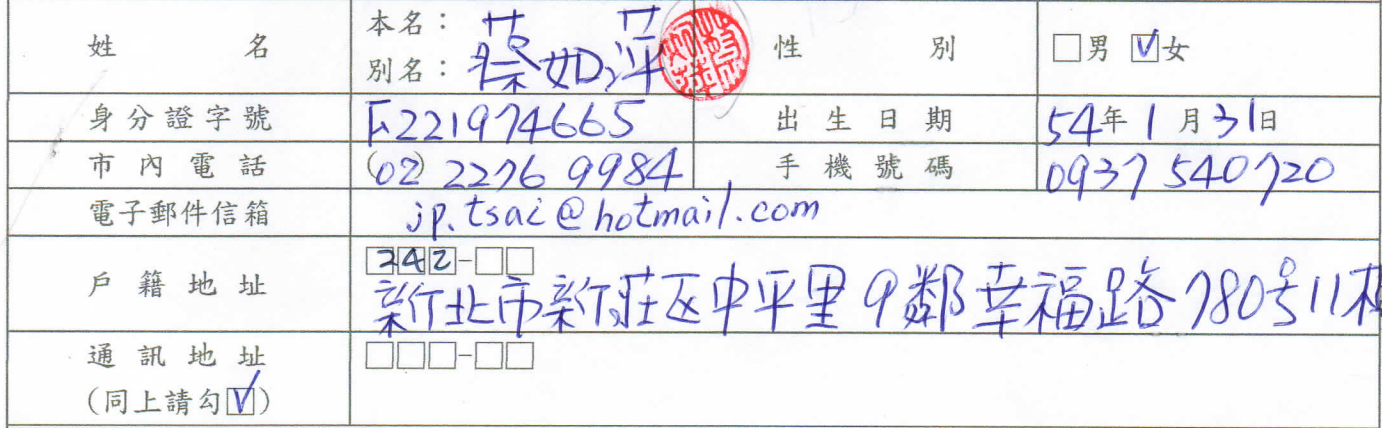 姓名 本名： 性別 □男 ☑女
別名：蔡如萍
身分證字號 F221974665 出生日期 54年1月31日
市內電話 (02) 2276 9984 手機號碼 0937 540720
電子郵件信箱 jp.tsai@hotmail.com
戶籍地址 242-□□
新北市新莊区中平里9鄰幸福路780号11
通訊地址 □□□-□□
(同上請勾☑)